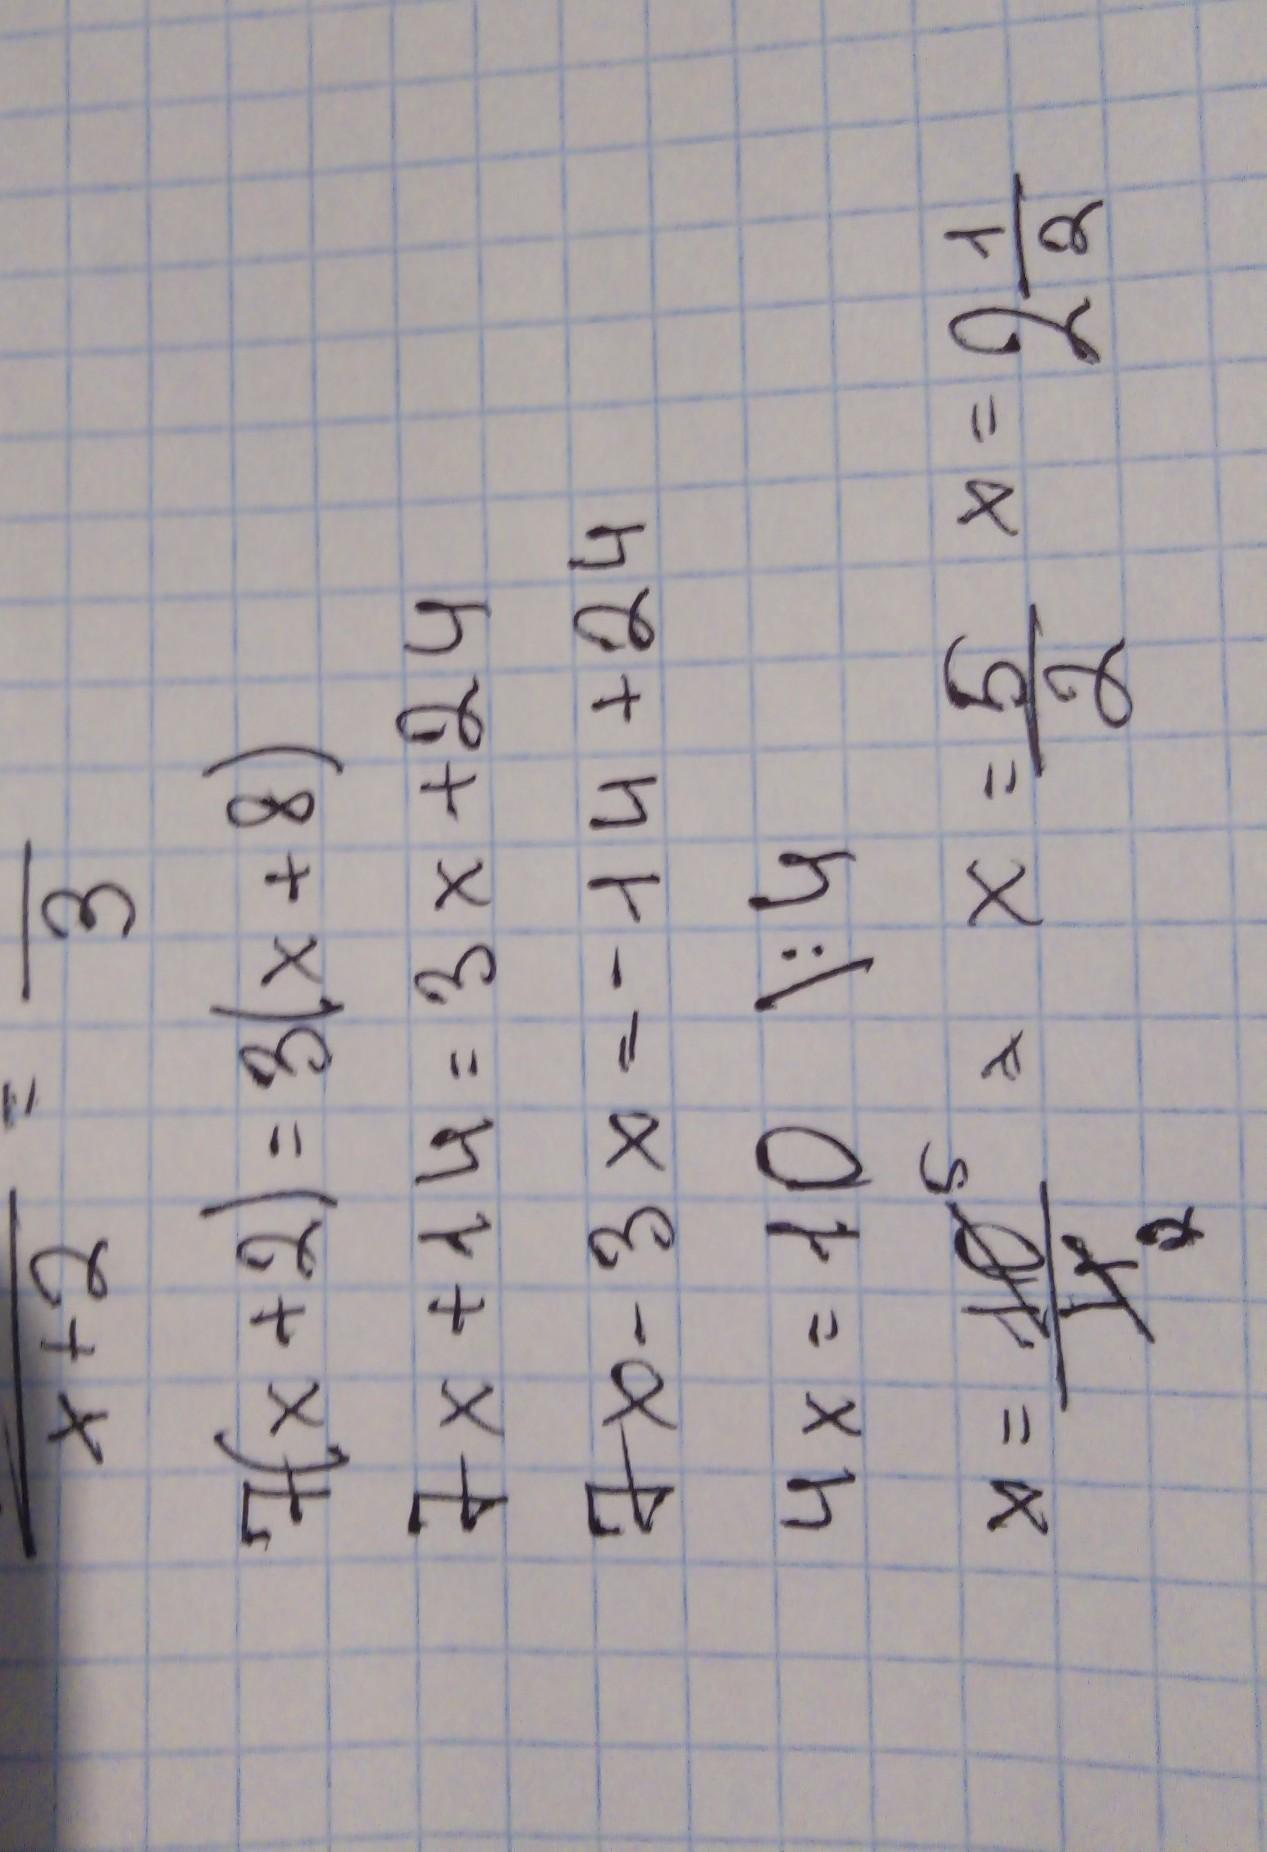 x+2 = 3
7(x+2)=3(x+8)
7x+14=3x+24
7x-3x=-14+24
4x=10 /:4
x=10/4 5 2 x=5/2 x=2 1/2